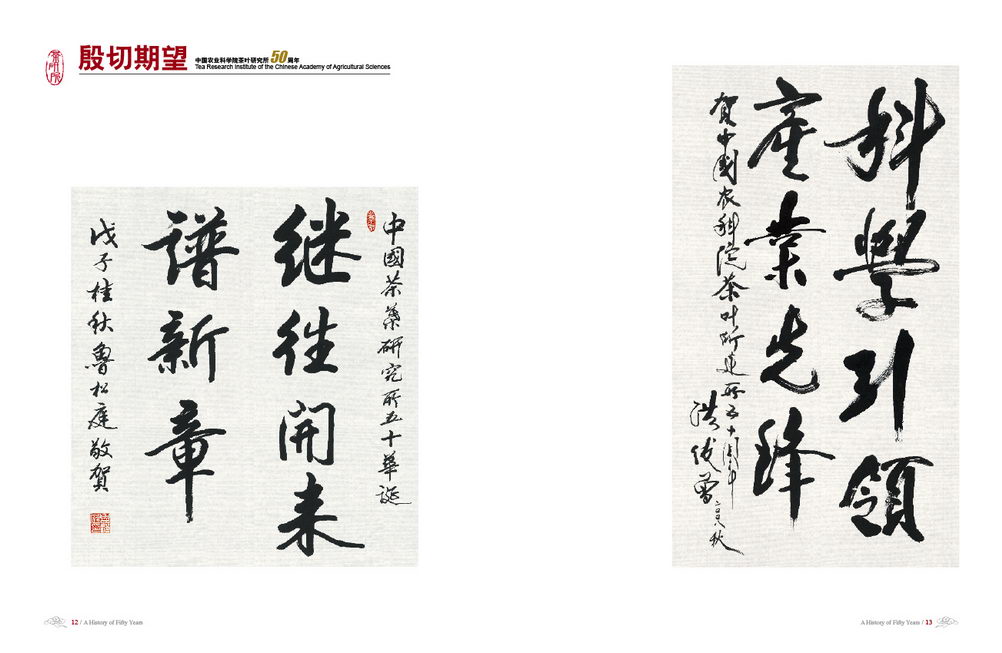 殷切期望
中国农业科学院茶叶研究所 50 周年
Tea Research Institute of the Chinese Academy of Agricultural Sciences
中國茶葉研究所五十華誕
继往開来
谱新章
戊子桂秋魯松庭敬賀
科學引領
產業先鋒
賀中國农科院茶叶所建所五十周年
洪俊曽
二〇〇八秋
12 / A History of Fifty Years
A History of Fifty Years / 13